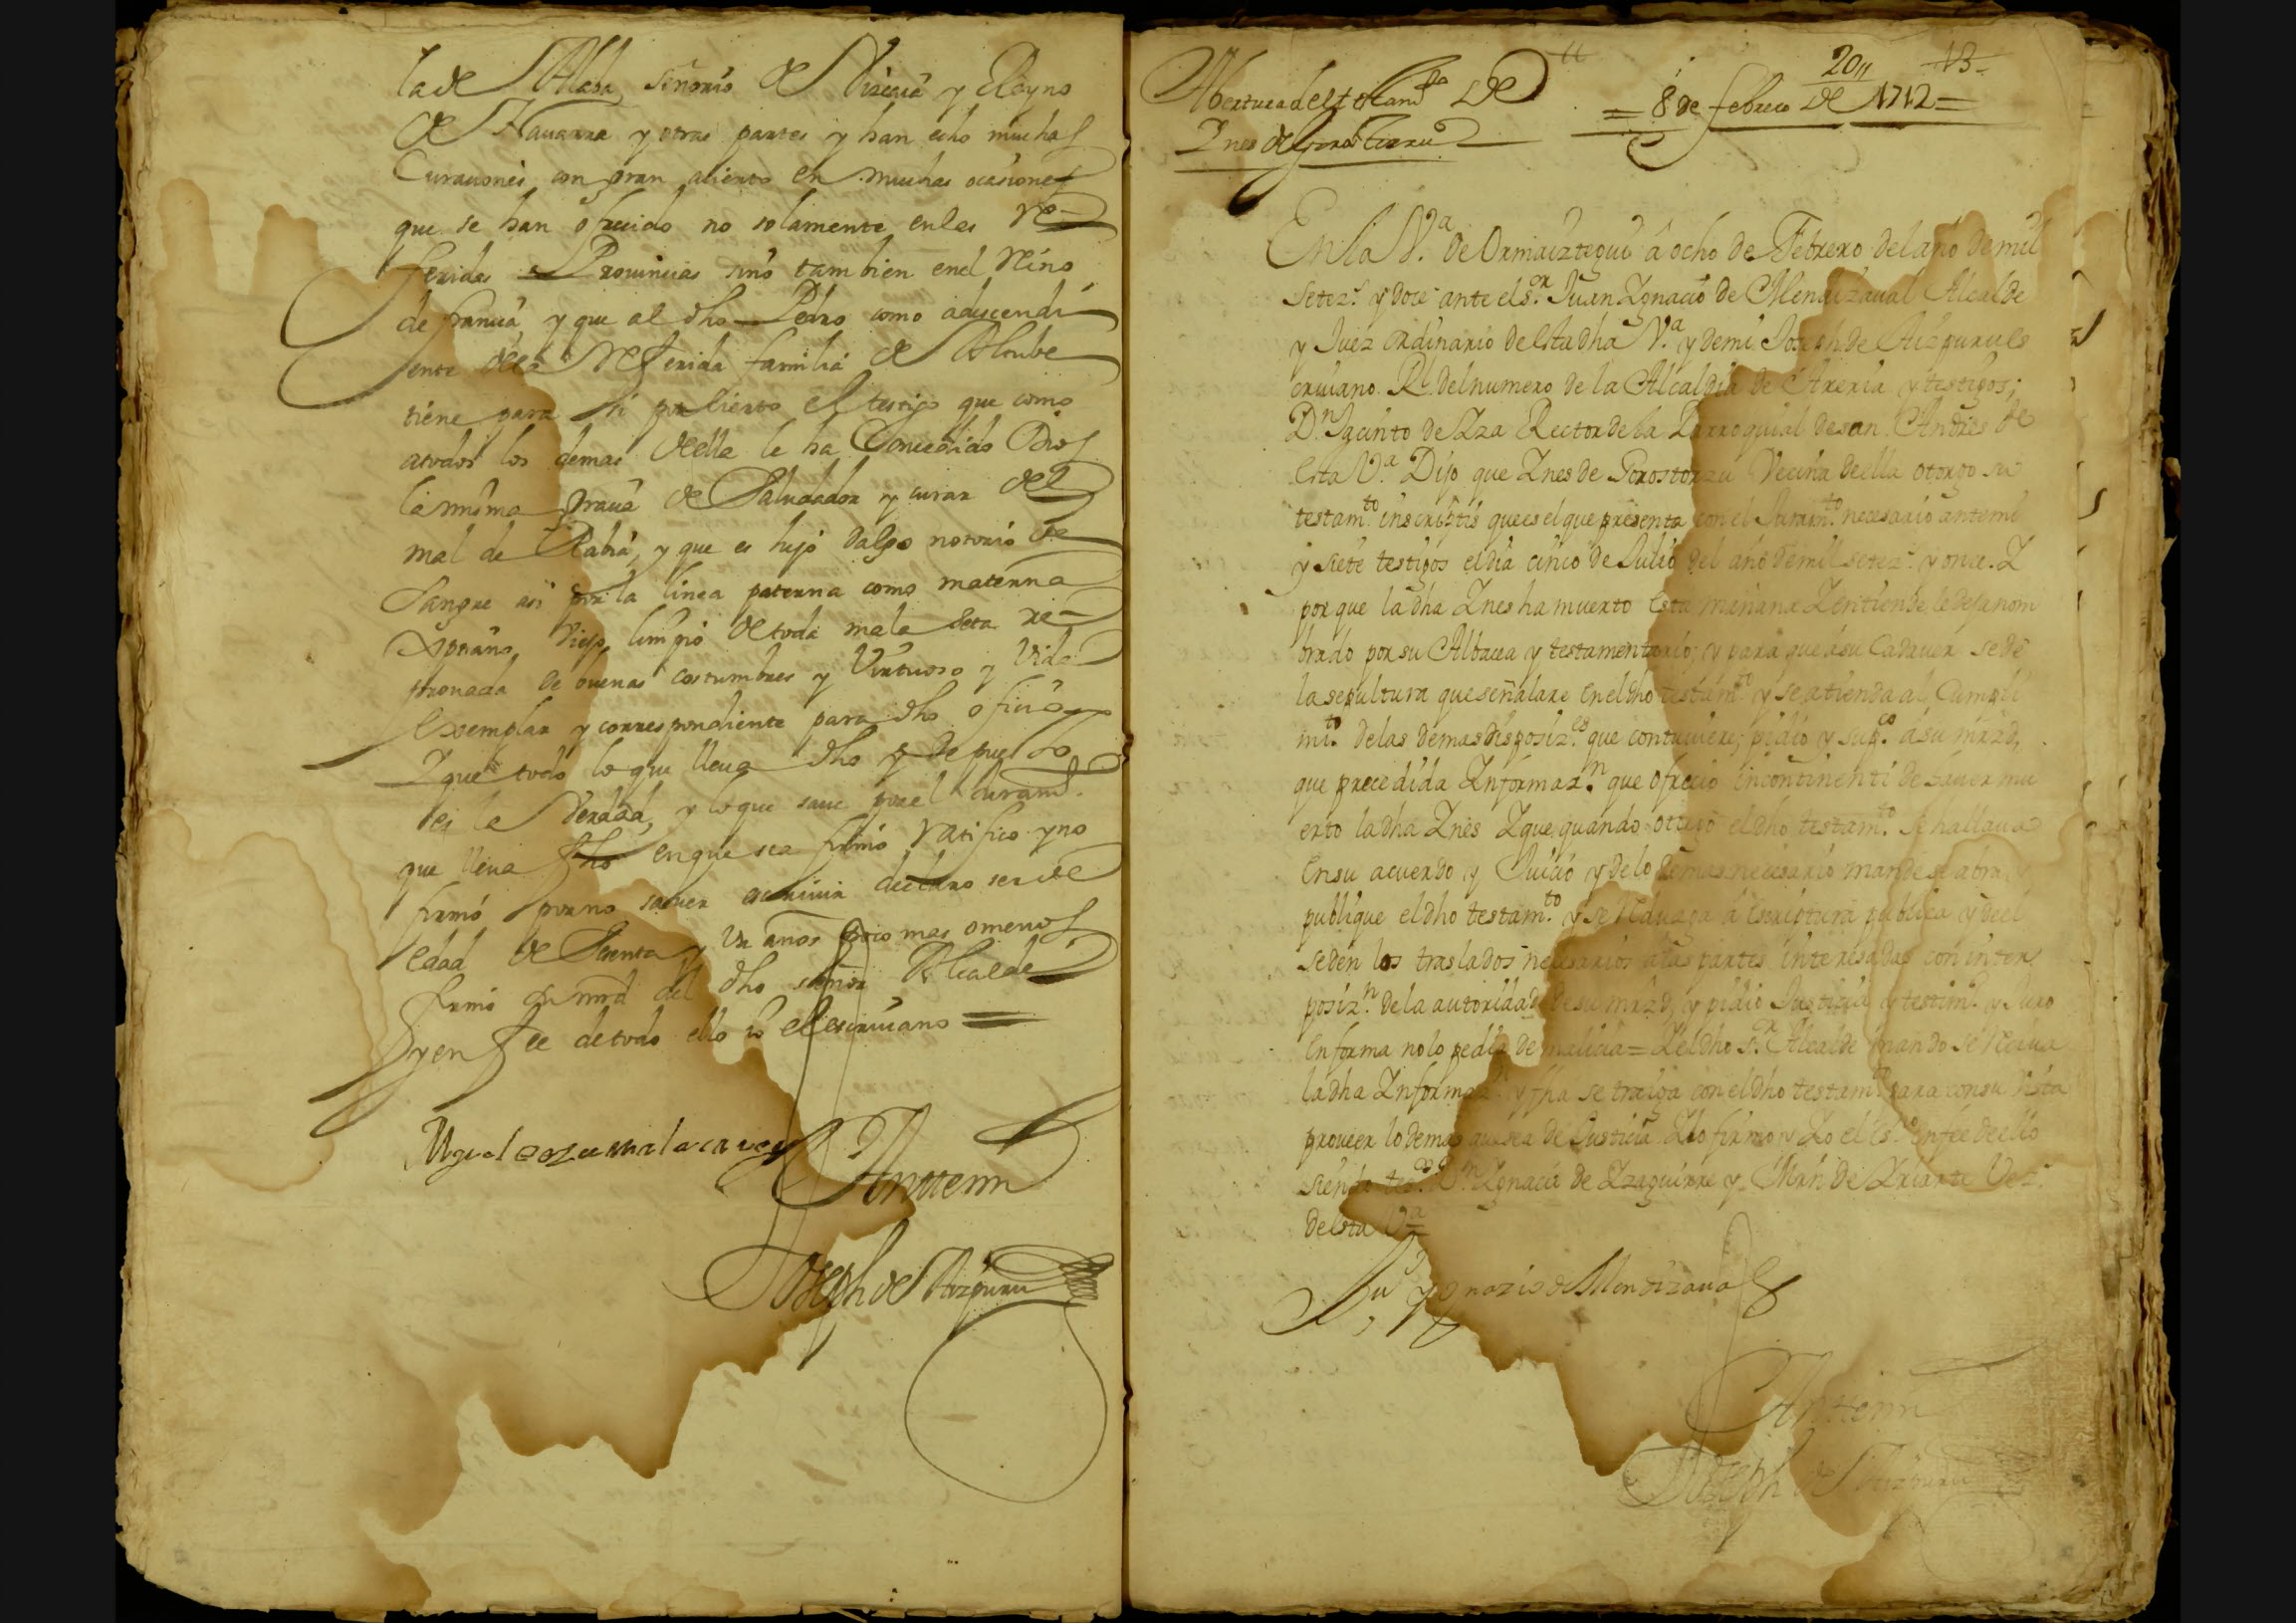 la de Alaba, señorio de Vizcaia y Reyno
de Nauarra y otras partes y han echo muchas
Curaciones con gran acierto en muchas ocasiones
que se han ofrecido no solamente en las re
feridas Prouincias sino tambien en el Reino
de francia, y que al dho Pedro como adescendi
ente de la referida familia de
tiene para si por cierto el testigo que como
atodos los demas della le ha Concedido Dios
la misma gracia de Saludador y curar del
mal de Rabia, y que es hijo dalgo notorio de
Sangre asi por la linea paterna como materna
Xpriano Viejo limpio de toda mala seta re
prouada de buenas costumbres y Virtuoso y Vida
Exemplar y correspondiente para dho oficio
Y que todo lo que lleua dho y depuesto
es la Verdad, y lo que saue por el Juramto.
que lleua fho en que se a firmó ratifico y no
firmó por no sauer escriuir declaro ser de
edad de años poco mas o menos
firmó su mrd del dho señor Alcalde
y en fee de todo ello yo el escriuano =
Migel
Antemi
Joseph de Aizpuru
Abertura del testamto. de
Ines de Gorostorzu
20
13
= 8 de febrero de 1712 =
En la Va. de Ormaiztegui â ocho de Febrero del año de mil
setezs. y doce ante el sor. Juan Ygnacio de Mendizaual Alcalde
y Juez ordinario desta dha Va. y de mi Joseph de Aizpuru es
criuano Rl. del numero de la Alcaldia de Areria y testigos;
Dn. Jacinto de Yza Rector de la Parroquial de san Andres de
esta Va. Dijo que Ynes de Gorostorzu Vecina della otorgo su
testamto. inscriptis que es el que presenta con el Juramto. necesario ante mi
y siete testigos el dia cinco de Julio del año de mil setezs. y once. Y
por que la dha Ynes ha muerto esta mañana Y entiende le deja nom
brado por su Albacea y testamentario; y para que a su Cadauer se dé
la sepultura que señalare en el dho testamto. y se atienda al Cumpli
mito. de las demas disposizes. que contuuiere; pidio y supco. á su mrzd,
que precedida Informazn. que ofrecio incontinenti de hauer mu
erto la dha Ynes Y que quando otorgó el dho testamto. se hallaua
en su acuerdo y Juicio y de lo demas necesario mande se abra y
publique el dho testamto. y se reduzga á escriptura publica y de el
se den los traslados necesarios a las partes interesadas con inter
posizn. de la autoridad de su mrzd, y pidio Justicia y testimo. y Juro
en forma no lo pedia de malicia = Y el dho sr. Alcalde mando se reciua
la dha Informazn. y fha se traiga con el dho testamto. para con su vista
proueer lo demas que sea de Justicia Y lo firmo y Yo el esno. en fee de ello
siendo tesos. Dn. Ygnacio de Yzaguirre y Mrn. de Yriarte Vezs.
desta Va.
Ju Ygnazio de Mendizaual
Antemi
Joseph de Aizpuru